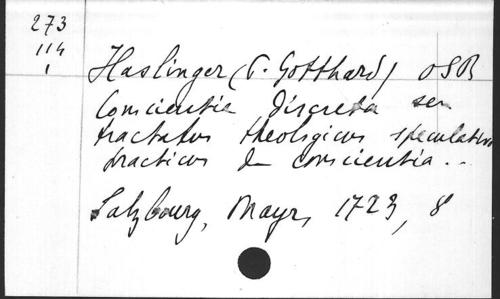 273
114
1
Haslinger (P. Gotthard) OSB
Conscientia discreta seu
tractatus theologicus speculativo
practicus de conscientia ..
Salzbourg, Mayr, 1723, 8